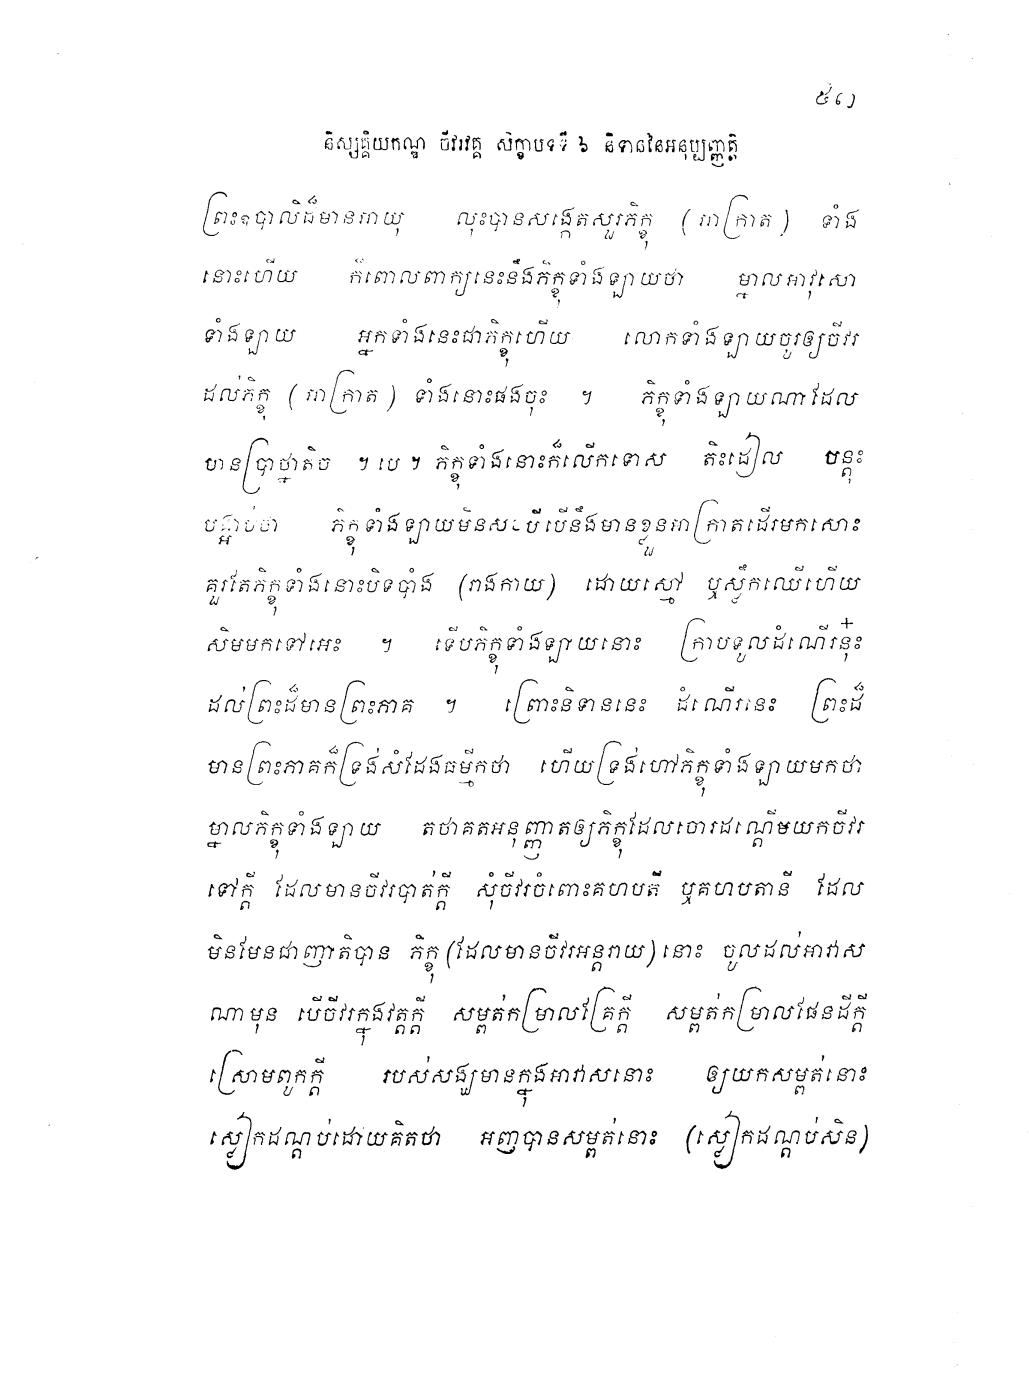 ៥៧
និស្សគ្គិយកណ្ឌ ចីវរវគ្គ សិក្ខាបទទី ៦ និទាននៃអនុប្បញ្ញត្តិ
ព្រះឧបាលិដ៏មានអាយុ លុះបានសង្កេតសួរភិក្ខុ (អាក្រាត) ទាំង
នោះហើយ ក៏ពោលពាក្យនេះនឹងភិក្ខុទាំងឡាយថា ម្នាលអាវុសោ
ទាំងឡាយ អ្នកទាំងនេះជាភិក្ខុហើយ លោកទាំងឡាយចូរឲ្យចីវរ
ដល់ភិក្ខុ (អាក្រាត) ទាំងនោះផងចុះ ។ ភិក្ខុទាំងឡាយណាដែល
មានប្រាថ្នាតិច ។ បេ ។ ភិក្ខុទាំងនោះក៏លើកទោស តិះដៀល បន្តុះ
បង្អាប់ថា ភិក្ខុទាំងឡាយមិនសបើបើនឹងមានខ្លួនអាក្រាតដើរមកសោះ
គួរតែភិក្ខុទាំងនោះបិទបាំង (រាងកាយ) ដោយស្មៅ ឬស្លឹកឈើហើយ
សិមមកទៅអេះ ។ ទើបភិក្ខុទាំងឡាយនោះ ក្រាបទូលដំណើរនុ៎ះ
ដល់ព្រះដ៏មានព្រះភាគ ។ ព្រោះនិទាននេះ ដំណើរនេះ ព្រះដ៏
មានព្រះភាគក៏ទ្រង់សំដែងធម្មីកថា ហើយទ្រង់ហៅភិក្ខុទាំងឡាយមកថា
ម្នាលភិក្ខុទាំងឡាយ តថាគតអនុញ្ញាតឲ្យភិក្ខុដែលចោរដណ្តើមយកចីវរ
ទៅក្តី ដែលមានចីវរបាត់ក្តី សុំចីវរចំពោះគហបតី ឬគហបតានី ដែល
មិនមែនជាញាតិបាន ភិក្ខុ (ដែលមានចីវរអន្តរាយ) នោះ ចូលដល់អាវាស
ណាមុន បើចីវរក្នុងវត្តក្តី សម្ពត់កម្រាលគ្រែក្តី សម្ពត់កម្រាលផែនដីក្តី
ស្រោមពូកក្តី របស់សង្ឃមានក្នុងអាវាសនោះ ឲ្យយកសម្ពត់នោះ
ស្លៀកដណ្តប់ដោយគិតថា អញបានសម្ពត់នោះ (ស្លៀកដណ្តប់សិន)